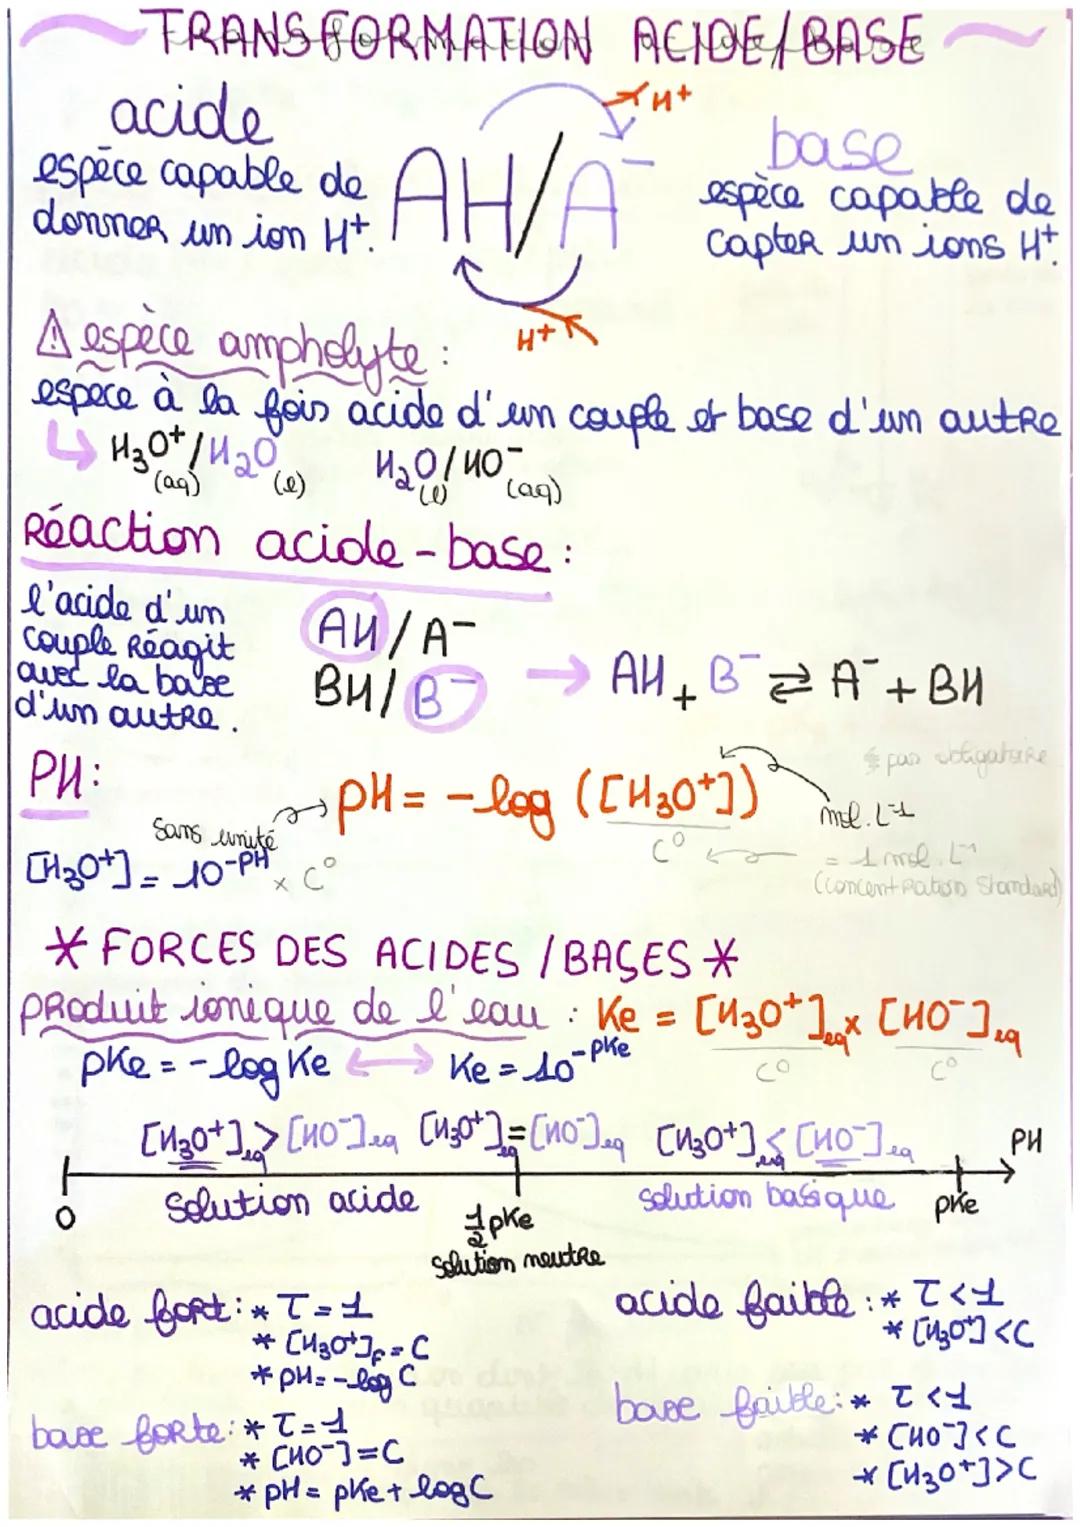 TRANSFORMATION ACIDE/BASE
acide
espèce capable de
donner un ion H+.
AH/A-
H+
H+
base
espèce capable de
capter un ions H+.
⚠ espèce ampholyte :
espece à la fois acide d'un couple et base d'un autre
↳ H3O+(aq)/H2O(l) H2O(l)/HO-(aq)
Réaction acide-base :
l'acide d'un
couple Réagit
avec la base
d'un autre.
AH/A-
BH/B-
→ AH + B- ⇄ A- + BH
PH:
sans unité
pH = -log ([H3O+])
C°
pas obligatoire
mol.L-1
= 1 mol.L-1
(concentration Standard)
[H3O+] = 10-PH x C°
* FORCES DES ACIDES / BASES *
produit ionique de l'eau : Ke = [H3O+]eq x [HO-]eq
C° C°
pKe = -log Ke ⟷ Ke = 10-pKe
[H3O+]eq > [HO-]eq [H3O+]eq = [HO-]eq [H3O+]eq < [HO-]eq PH
0 solution acide 1/2 pKe solution basique pKe
solution neutre
acide fort : * τ = 1
* [H3O+]f = C
* pH = -log C
acide faible : * τ < 1
* [H3O+] < C
base forte : * τ = 1
* [HO-] = C
* pH = pKe + log C
base faible : * τ < 1
* [HO-] < C
* [H3O+] > C